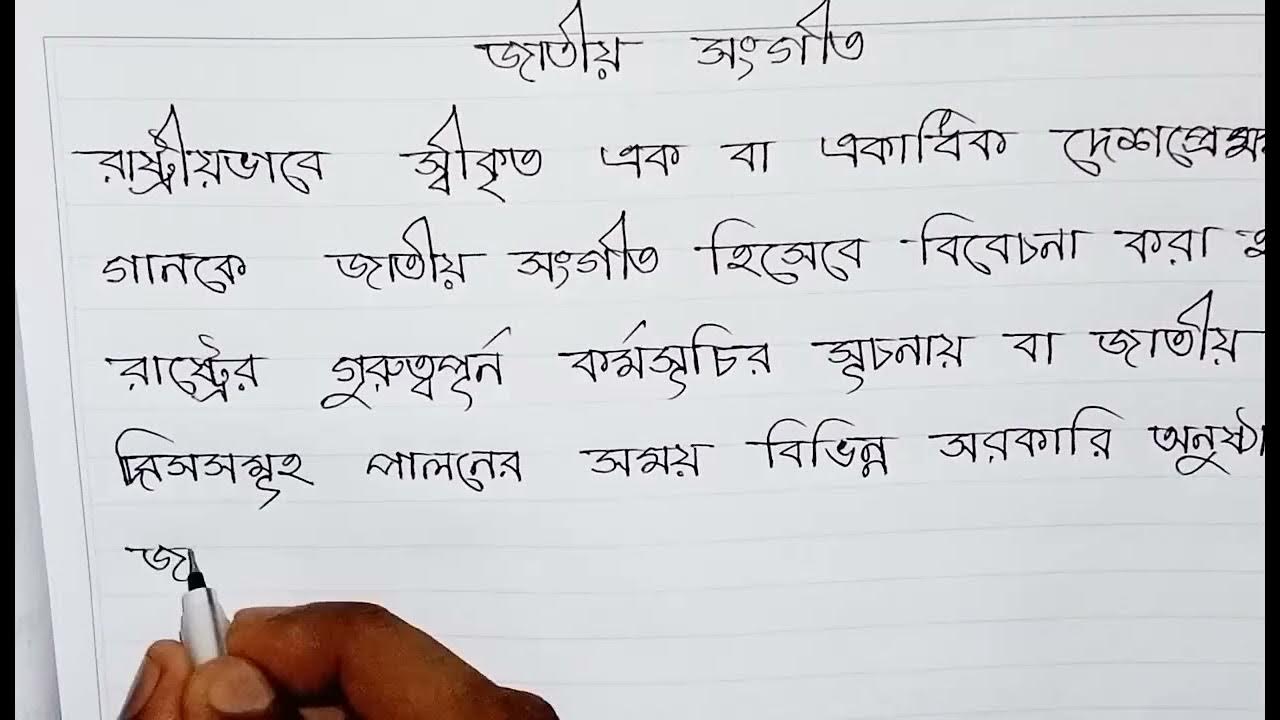 জাতীয় সংগীত
রাষ্ট্রীয়ভাবে স্বীকৃত এক বা একাধিক
গানকে জাতীয় সংগীত হিসেবে বিবেচনা করা
রাষ্ট্রের গুরুত্বপূর্ন কর্মসূচির সূচনায় বা জাতীয়
পালনের সময় বিভিন্ন সরকারি